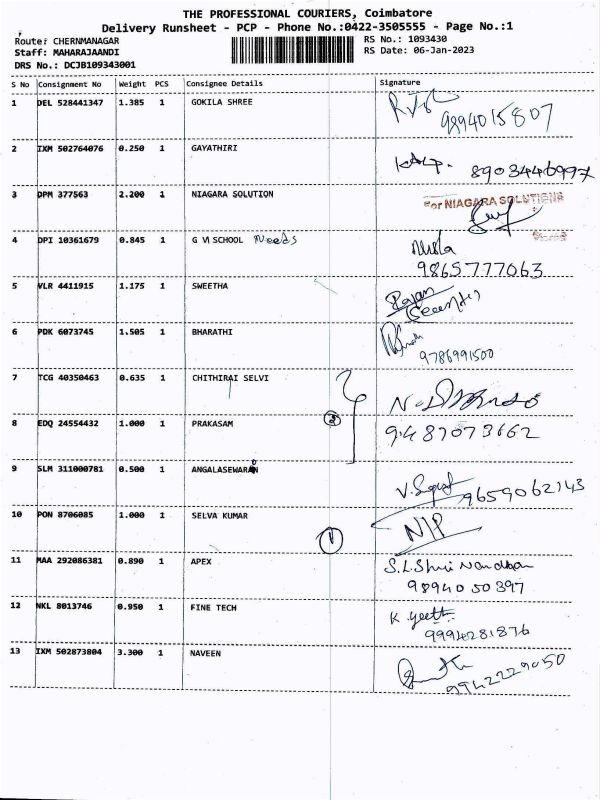 THE PROFESSIONAL COURIERS, Coimbatore
Delivery Runsheet - PCP - Phone No.:0422-3505555 - Page No.:1
Route: CHERNMANAGAR
Staff: MAHARAJAANDI
DRS No.: DCJB109343001
RS No.: 1093430
RS Date: 06-Jan-2023
S No Consignment No Weight PCS Consignee Details Signature
1 DEL 528441347 1.385 1 GOKILA SHREE
9894015807
2 IXM 502764076 0.250 1 GAYATHIRI
8903446997
3 DPM 377563 2.200 1 NIAGARA SOLUTION
For NIAGARA SOLUTIONS
4 DPI 10361679 0.845 1 G VI SCHOOL Needs
9865777063
5 VLR 4411915 1.175 1 SWEETHA
6 PDK 6073745 1.505 1 BHARATHI
9786991500
7 TCG 40350463 0.635 1 CHITHIRAI SELVI
8 EDQ 24554432 1.000 1 PRAKASAM 2
9487073662
9 SLM 311000781 0.500 1 ANGALASEWARAN
9659062143
10 PON 8706085 1.000 1 SELVA KUMAR
1 N/P
11 MAA 292086381 0.890 1 APEX S.L.Shri Nandhan
9894050397
12 NKL 8013746 0.950 1 FINE TECH
9994281876
13 IXM 502873804 3.300 1 NAVEEN
9942229050